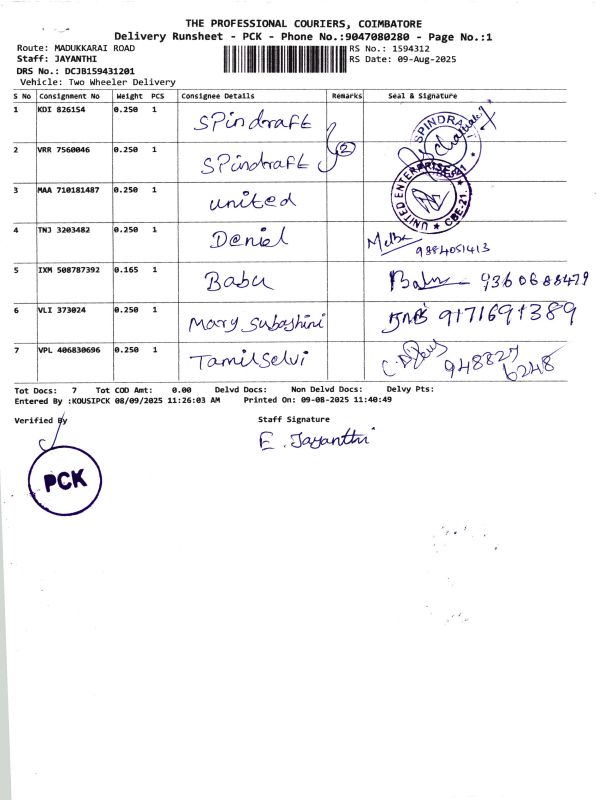 THE PROFESSIONAL COURIERS, COIMBATORE
Delivery Runsheet - PCK - Phone No.:9047080280 - Page No.:1
Route: MADUKKARAI ROAD RS No.: 1594312
Staff: JAYANTHI RS Date: 09-Aug-2025
DRS No.: DCJB159431201
Vehicle: Two Wheeler Delivery
S No Consignment No Weight PCS Consignee Details Remarks Seal & Signature
1 KDI 826154 0.250 1 SPindraft SPINDRAFT
2 VRR 7560046 0.250 1 SPindraft 2
3 MAA 710181487 0.250 1 united UNITED ENTERPRISE CBE-21.
4 TNJ 3203482 0.250 1 Deniel 9884051413
5 IXM 508787392 0.165 1 Babu Babu 9360688479
6 VLI 373024 0.250 1 Mary Subashini 9171691389
7 VPL 406830696 0.250 1 Tamilselvi 948827
6248
Tot Docs: 7 Tot COD Amt: 0.00 Delvd Docs: Non Delvd Docs: Delvy Pts:
Entered By :KOUSIPCK 08/09/2025 11:26:03 AM Printed On: 09-08-2025 11:40:49
Verified By Staff Signature
E. Jayanthi
PCK